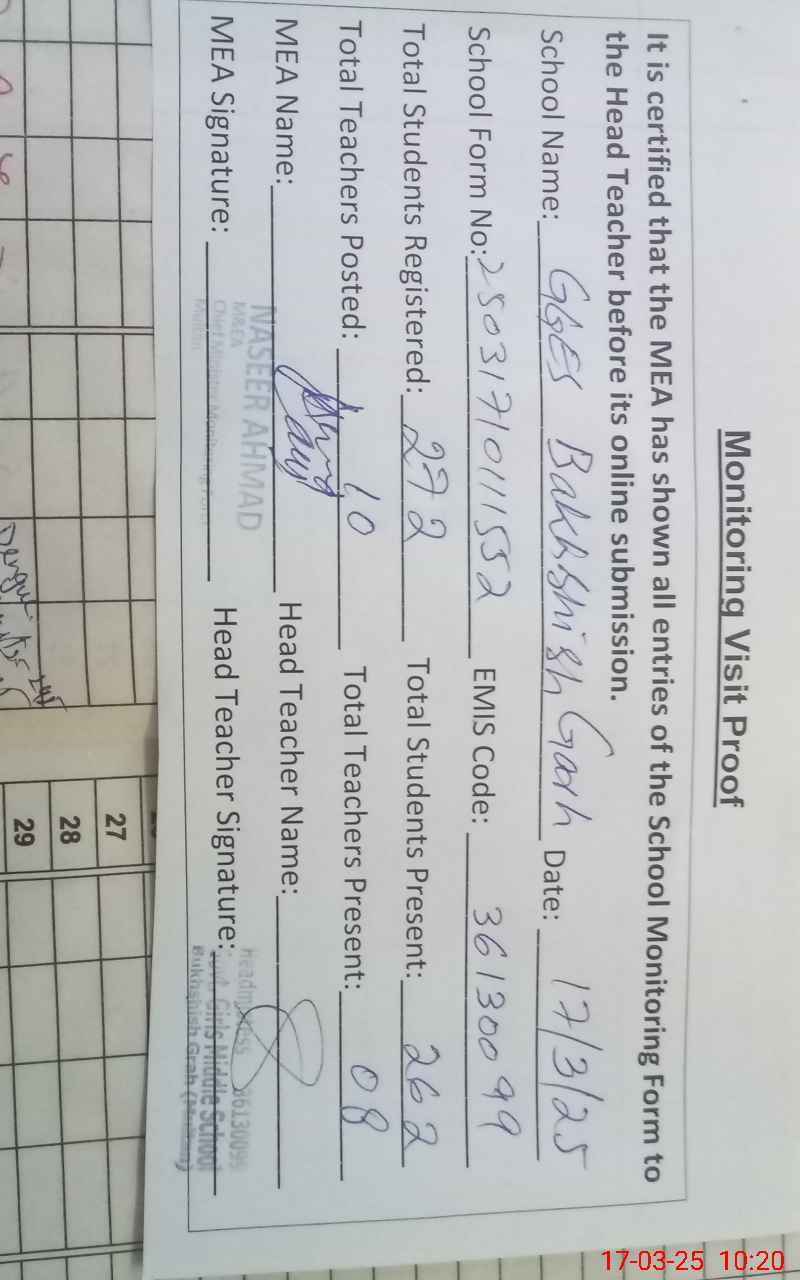 Monitoring Visit Proof
It is certified that the MEA has shown all entries of the School Monitoring Form to
the Head Teacher before its online submission.
School Name: GGES Bakhshish Garh Date: 17/3/25
School Form No: 2503171011552 EMIS Code: 36130099
Total Students Registered: 272 Total Students Present: 262
Total Teachers Posted: 10 Total Teachers Present: 08
MEA Name: Head Teacher Name:
NASEER AHMAD
MEA Signature: Head Teacher Signature:
M&EA
Chief Minister Monitoring Force
Multan
Headmistress 36130099
Govt. Girls Middle School
Bukhshish Grah (Multan)
27
28
29
17-03-25 10:20